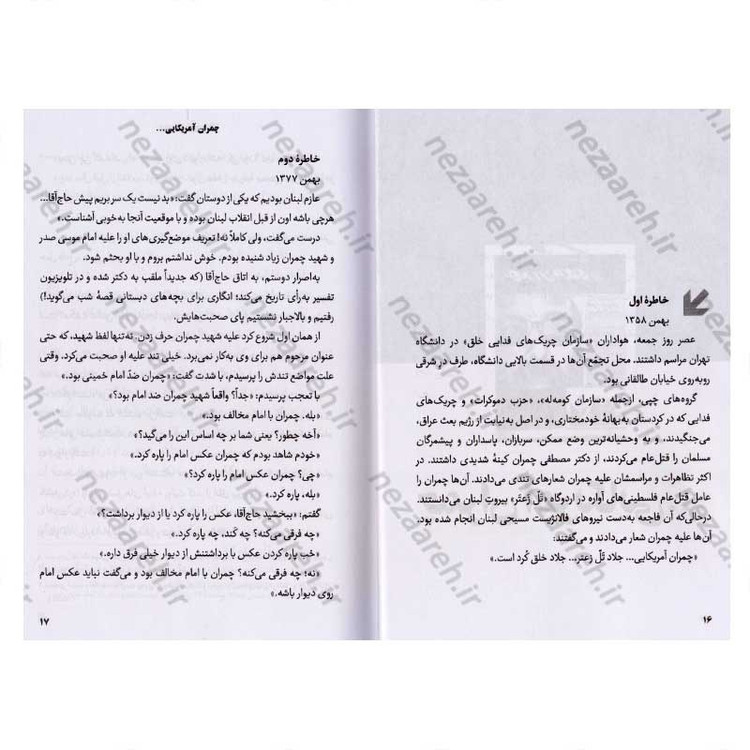 خاطرهٔ اول
بهمن ۱۳۵۸
عصر روز جمعه، هواداران «سازمان چریک‌های فدایی خلق» در دانشگاه
تهران مراسم داشتند. محل تجمّع آن‌ها در قسمت بالایی دانشگاه، طرف در شرقی
روبه‌روی خیابان طالقانی بود.
گروه‌های چپی، ازجمله «سازمان کومه‌له»، «حزب دموکرات» و چریک‌های
فدایی که در کردستان به‌بهانهٔ خودمختاری، و در اصل به‌نیابت از رژیم بعث عراق،
می‌جنگیدند، و به وحشیانه‌ترین وضع ممکن، سربازان، پاسداران و پیشمرگان
مسلمان را قتل‌عام می‌کردند، از دکتر مصطفی چمران کینهٔ شدیدی داشتند. در
اکثر تظاهرات و مراسمشان علیه چمران شعارهای تندی می‌دادند. آن‌ها چمران را
عامل قتل‌عام فلسطینی‌های آواره در اردوگاه «تَلّ زَعتر» بیروتِ لبنان می‌دانستند.
درحالی‌که آن فاجعه به‌دست نیروهای فالانژیست مسیحی لبنان انجام شده بود.
آن‌ها علیه چمران شعار می‌دادند و می‌گفتند:
«چمران آمریکایی... جلاد تَلّ زعتر... جلاد خلق کُرد است.»
۱۶
چمران آمریکایی...
خاطرهٔ دوم
بهمن ۱۳۷۷
عازم لبنان بودیم که یکی از دوستان گفت: «بد نیست یک سر بریم پیش حاج‌آقا...
هرچی باشه اون از قبل انقلاب لبنان بوده و با موقعیت آنجا به‌خوبی آشناست.»
درست می‌گفت، ولی کاملاً نه! تعریف موضع‌گیری‌های او را علیه امام موسی صدر
و شهید چمران زیاد شنیده بودم. خوش نداشتم بروم و با او بحثم شود.
به‌اصرار دوستم، به اتاق حاج‌آقا (که جدیداً ملقب به دکتر شده و در تلویزیون
تفسیر به‌رأی تاریخ می‌کند؛ انگاری برای بچه‌های دبستانی قصهٔ شب می‌گوید!)
رفتیم و بالاجبار نشستیم پای صحبت‌هایش.
از همان اول شروع کرد علیه شهید چمران حرف زدن. نه‌تنها لفظ شهید، که حتی
عنوان مرحوم هم برای وی به‌کار نمی‌برد. خیلی تند علیه او صحبت می‌کرد. وقتی
علت مواضع تندش را پرسیدم، با شدت گفت: «چمران ضدّ امام خمینی بود.»
با تعجب پرسیدم: «جداً؟ واقعاً شهید چمران ضد امام بود؟»
«بله. چمران با امام مخالف بود.»
«آخه چطور؟ یعنی شما بر چه اساس این را می‌گید؟»
«خودم شاهد بودم که چمران عکس امام را پاره کرد.»
«چی؟ چمران عکس امام را پاره کرد؟»
«بله، پاره کرد.»
گفتم: «ببخشید حاج‌آقا، عکس را پاره کرد یا از دیوار برداشت؟»
«چه فرقی می‌کنه؟ چه کَند، چه پاره کرد.»
«خب پاره کردن عکس با برداشتنش از دیوار خیلی فرق داره.»
«نه؛ چه فرقی می‌کنه؟ چمران با امام مخالف بود و می‌گفت نباید عکس امام
روی دیوار باشه.»
۱۷
nezaareh.ir